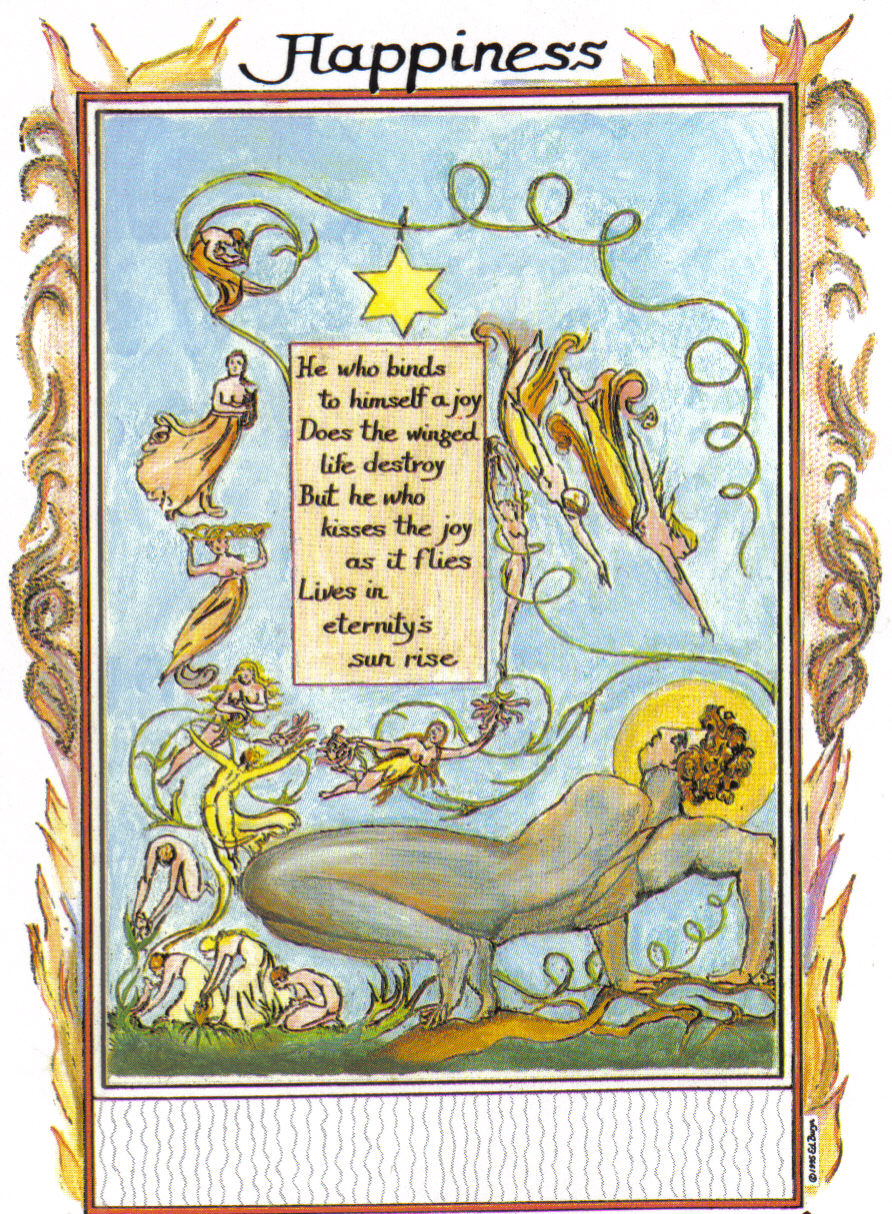 Happiness
He who binds
to himself a joy
Does the winged
life destroy
But he who
kisses the joy
as it flies
Lives in
eternity's
sun rise
© 1995 Ed Buryn